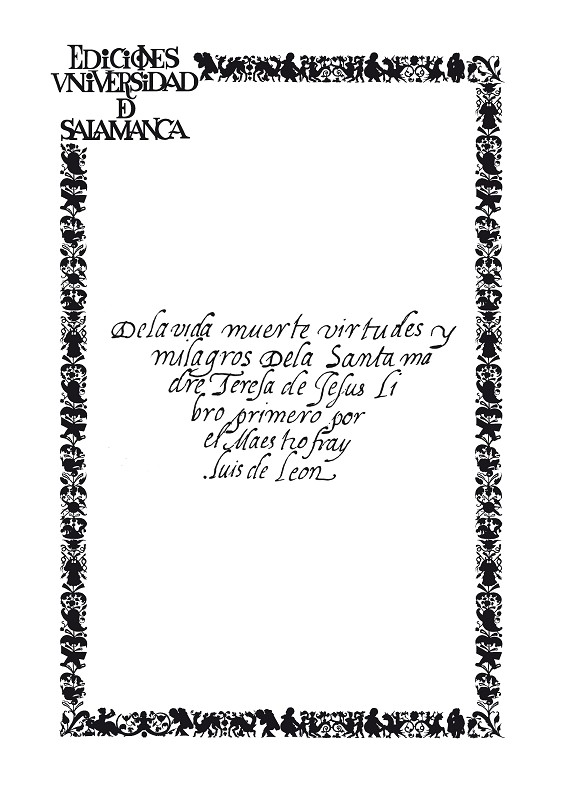 EDiCiONES
VNiVERSiDAD
DE
SALAMANCA
De la vida muerte virtudes y
milagros De la Santa ma
dre Teresa de Jesus Li
bro primero por
el Maestro fray
.luis de leon